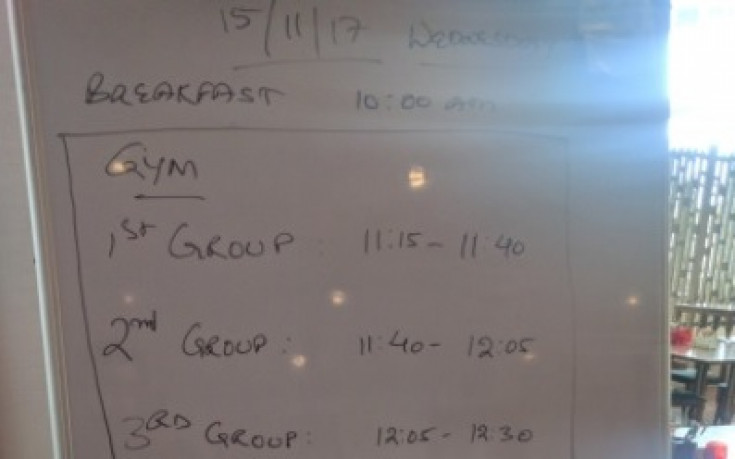 15/11/17 WEDNESDAY
BREAKFAST 10:00 am
GYM
1st GROUP : 11:15 - 11:40
2nd GROUP : 11:40 - 12:05
3RD GROUP : 12:05 - 12:30